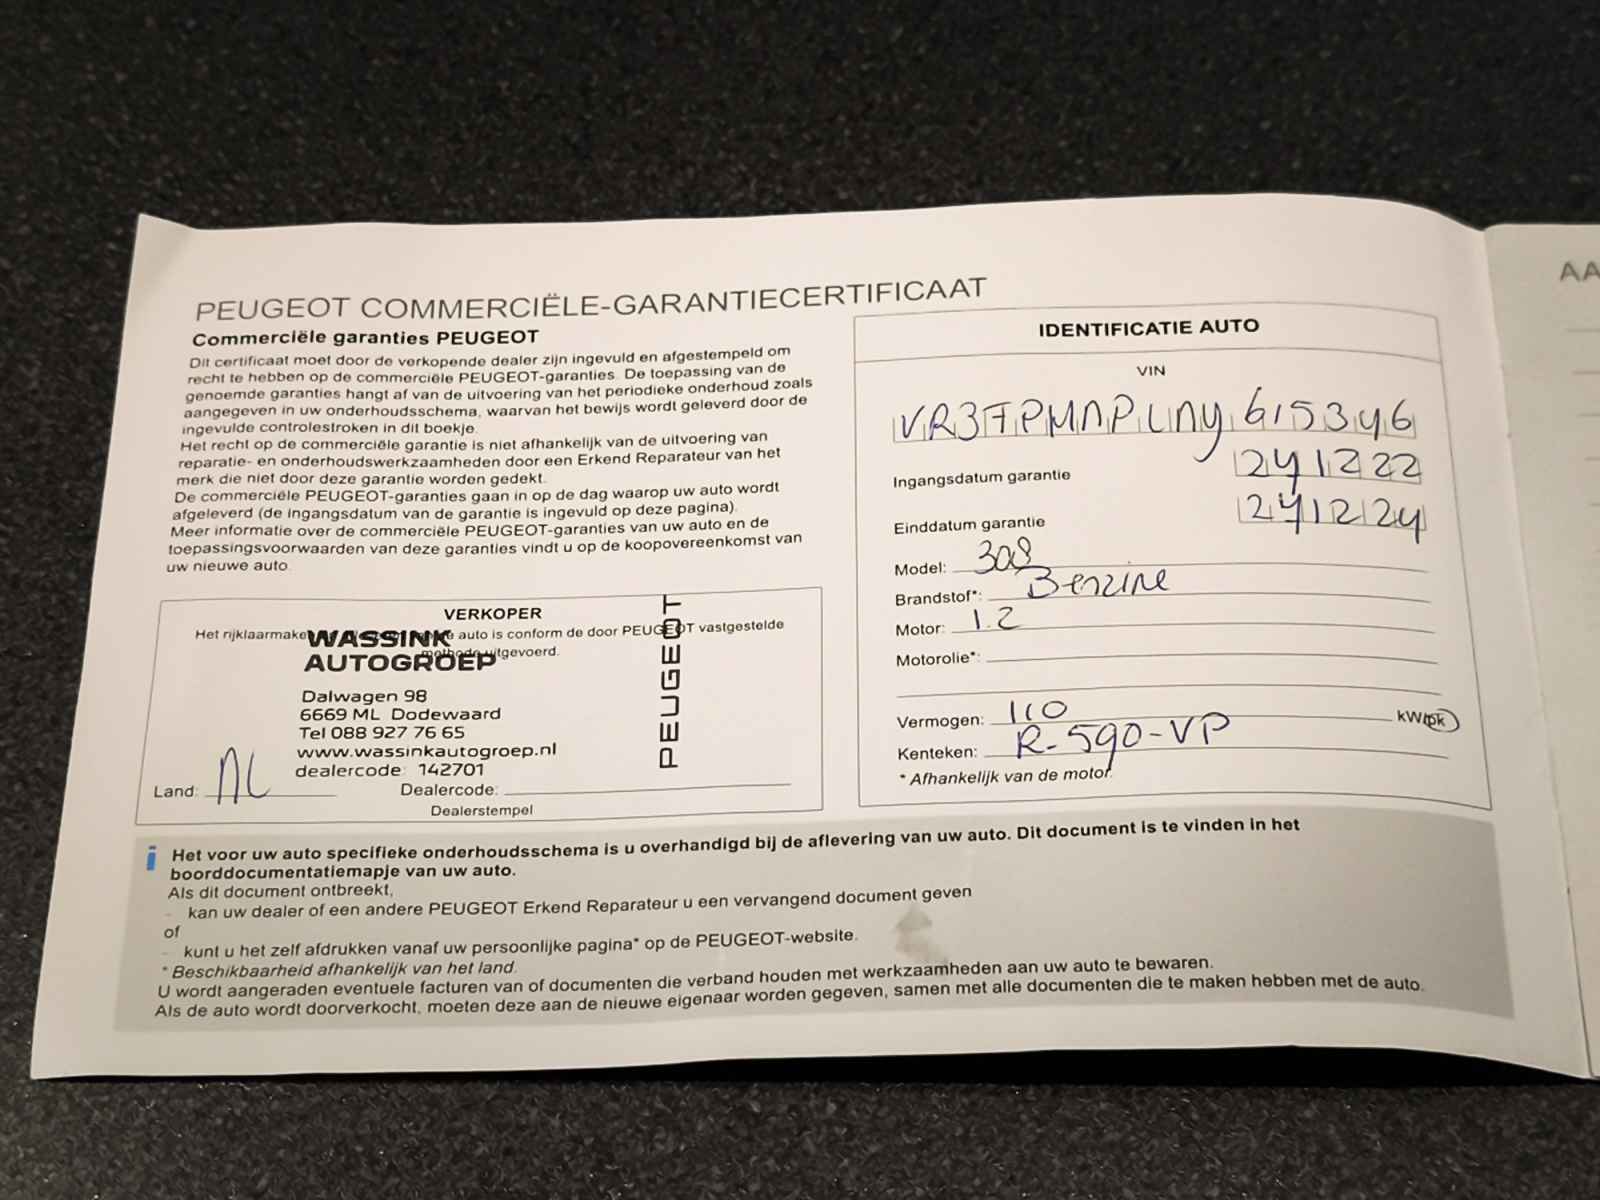 PEUGEOT COMMERCIËLE-GARANTIECERTIFICAAT
Commerciële garanties PEUGEOT
Dit certificaat moet door de verkopende dealer zijn ingevuld en afgestempeld om
recht te hebben op de commerciële PEUGEOT-garanties. De toepassing van de
genoemde garanties hangt af van de uitvoering van het periodieke onderhoud zoals
aangegeven in uw onderhoudsschema, waarvan het bewijs wordt geleverd door de
ingevulde controlestroken in dit boekje.
Het recht op de commerciële garantie is niet afhankelijk van de uitvoering van
reparatie- en onderhoudswerkzaamheden door een Erkend Reparateur van het
merk die niet door deze garantie worden gedekt.
De commerciële PEUGEOT-garanties gaan in op de dag waarop uw auto wordt
afgeleverd (de ingangsdatum van de garantie is ingevuld op deze pagina).
Meer informatie over de commerciële PEUGEOT-garanties van uw auto en de
toepassingsvoorwaarden van deze garanties vindt u op de koopovereenkomst van
uw nieuwe auto.
VERKOPER
Het rijklaarmaken auto is conform de door PEUGEOT vastgestelde
methode uitgevoerd.
WASSINK
AUTOGROEP
Dalwagen 98
6669 ML Dodewaard
Tel 088 927 76 65
www.wassinkautogroep.nl
dealercode: 142701
PEUGEOT
Land: NL
Dealercode:
Dealerstempel
IDENTIFICATIE AUTO
VIN
VR3FPMNPLNY615346
Ingangsdatum garantie 241222
Einddatum garantie 241224
Model: 308
Brandstof*: Benzine
Motor: 1.2
Motorolie*:
Vermogen: 110 kW/pk
Kenteken: R-590-VP
* Afhankelijk van de motor.
i Het voor uw auto specifieke onderhoudsschema is u overhandigd bij de aflevering van uw auto. Dit document is te vinden in het
boorddocumentatiemapje van uw auto.
Als dit document ontbreekt,
- kan uw dealer of een andere PEUGEOT Erkend Reparateur u een vervangend document geven
of
- kunt u het zelf afdrukken vanaf uw persoonlijke pagina* op de PEUGEOT-website.
* Beschikbaarheid afhankelijk van het land.
U wordt aangeraden eventuele facturen van of documenten die verband houden met werkzaamheden aan uw auto te bewaren.
Als de auto wordt doorverkocht, moeten deze aan de nieuwe eigenaar worden gegeven, samen met alle documenten die te maken hebben met de auto.